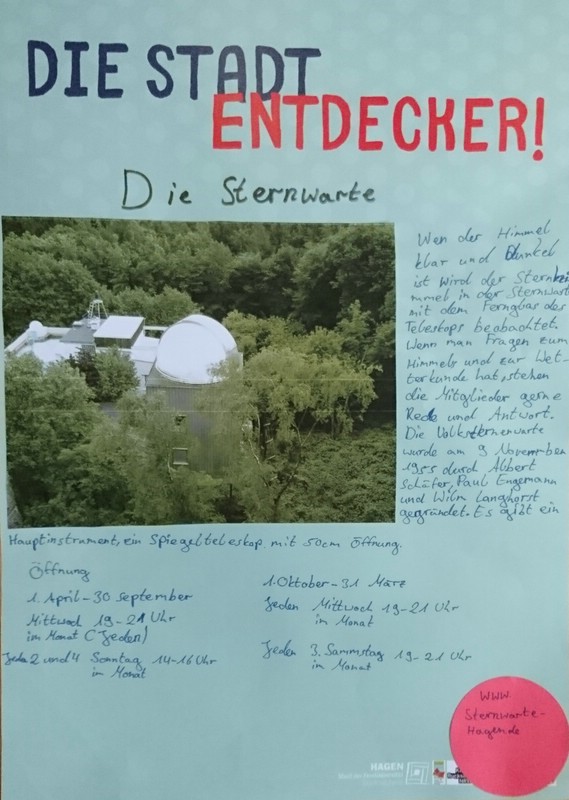 DIE STADT
ENTDECKER!
Die Sternwarte
Wen der Himmel
klar und Dunkel
ist wird der Sternhi
mmel in der Sternwart
mit dem Fernglas des
Teleskops beobachtet.
Wenn man Fragen zum
Himmels und zur Wet-
terkunde hat, stehen
die Mitglieder gerne
Rede und Antwort.
Die Volksternenwarte
wurde am 9 November
1955 durch Albert
Schäfer, Paul Engemann
und Wilm Langhorst
gegründet. Es gibt ein
Hauptinstrument, ein Spiegelteleskop mit 50cm Öffnung.
Öffnung
1. April-30 September
Mittwoch 19-21 Uhr
im Monat (Jeden)
Jeden 2 und 4 Sonntag 14-16 Uhr
im Monat
1. Oktober-31 März
Jeden Mittwoch 19-21 Uhr
im Monat
Jeden 3. Sammstag 19-21 Uhr
im Monat
www.
Sternwarte-
Hagen.de
HAGEN
Stadt der FernUniversität